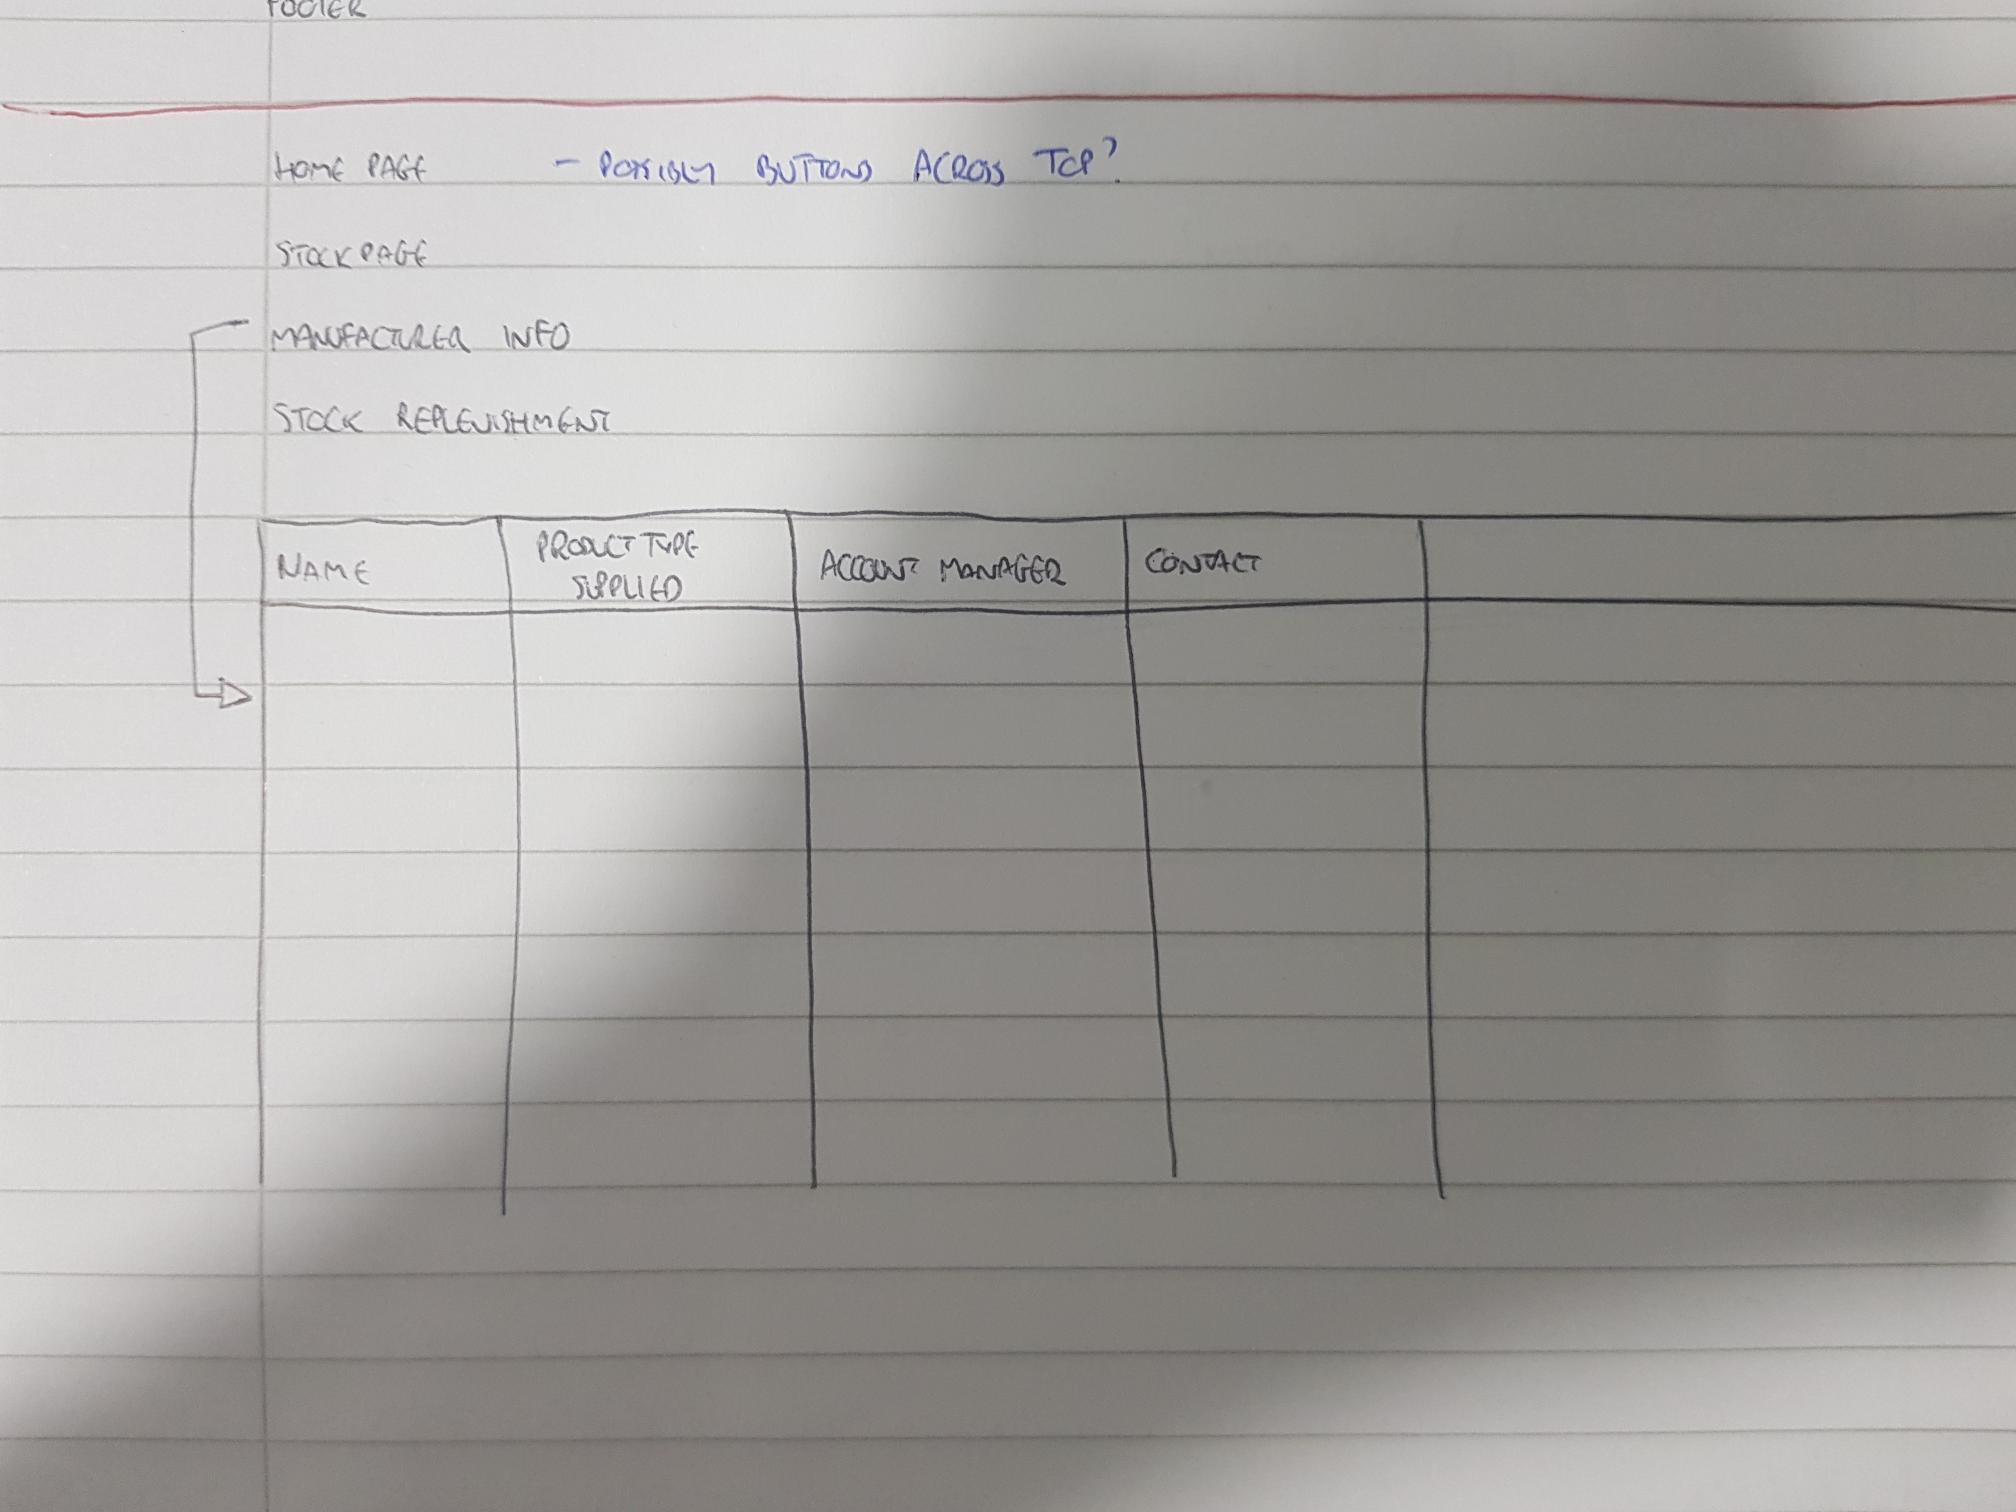 FOOTER
HOME PAGE - POSSIBLY BUTTONS ACROSS TOP?
STOCK PAGE
MANUFACTURER INFO
STOCK REPLENISHMENT
NAME
PRODUCT TYPE
SUPPLIED
ACCOUNT MANAGER
CONTACT